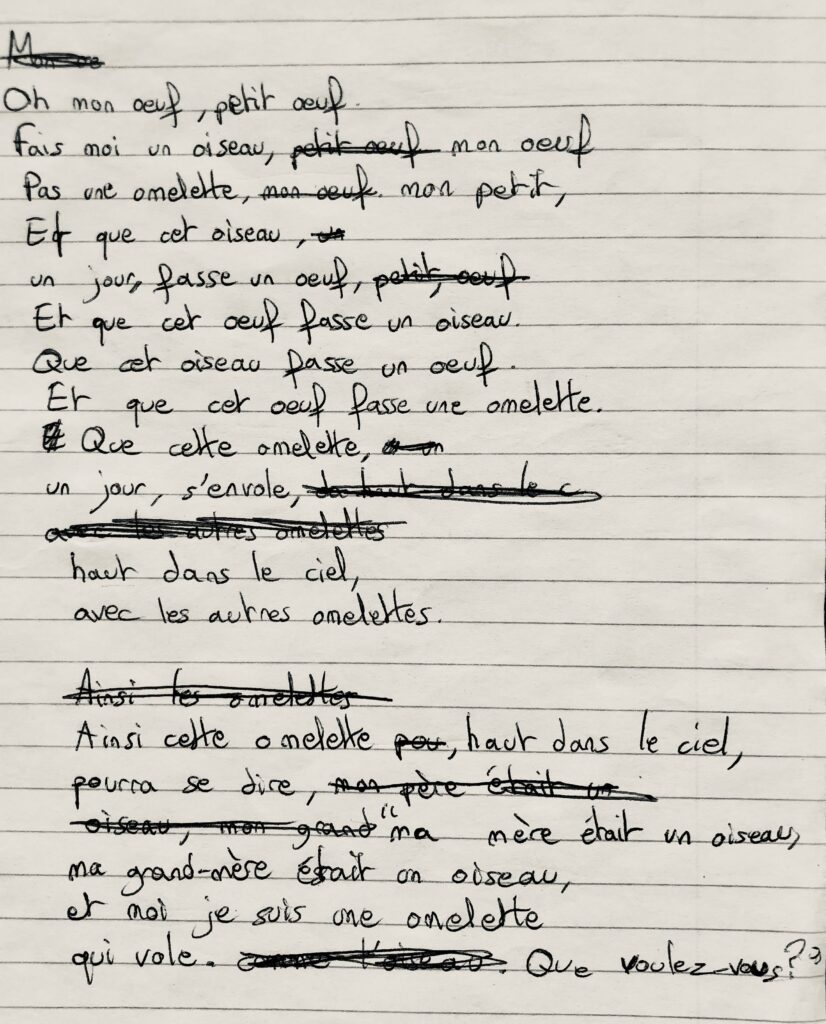 Oh mon oeuf, petit oeuf.
Fais moi un oiseau, petit oeuf mon oeuf
Pas une omelette, mon oeuf. mon petit,
Et que cet oiseau, un
un jour, fasse un oeuf, petit, oeuf
Et que cet oeuf fasse un oiseau.
Que cet oiseau fasse un oeuf.
Et que cet oeuf fasse une omelette.
Que cette omelette,
un jour, s'envole, haut dans le c
avec les autres omelettes
haut dans le ciel,
avec les autres omelettes.
Ainsi les omelettes
Ainsi cette omelette pou, haut dans le ciel,
pourra se dire, mon père était un
oiseau, mon grand "ma mère était un oiseau,
ma grand-mère était un oiseau,
et moi je suis une omelette
qui vole. comme l'oiseau. Que voulez-vous?"